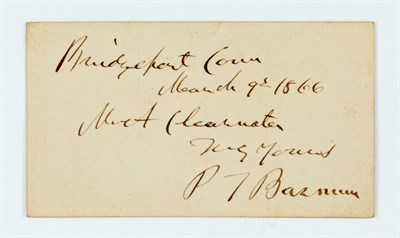 Bridgeport Conn
March 9th 1866
Mr A Clearwater
Truly Yours
P T Barnum